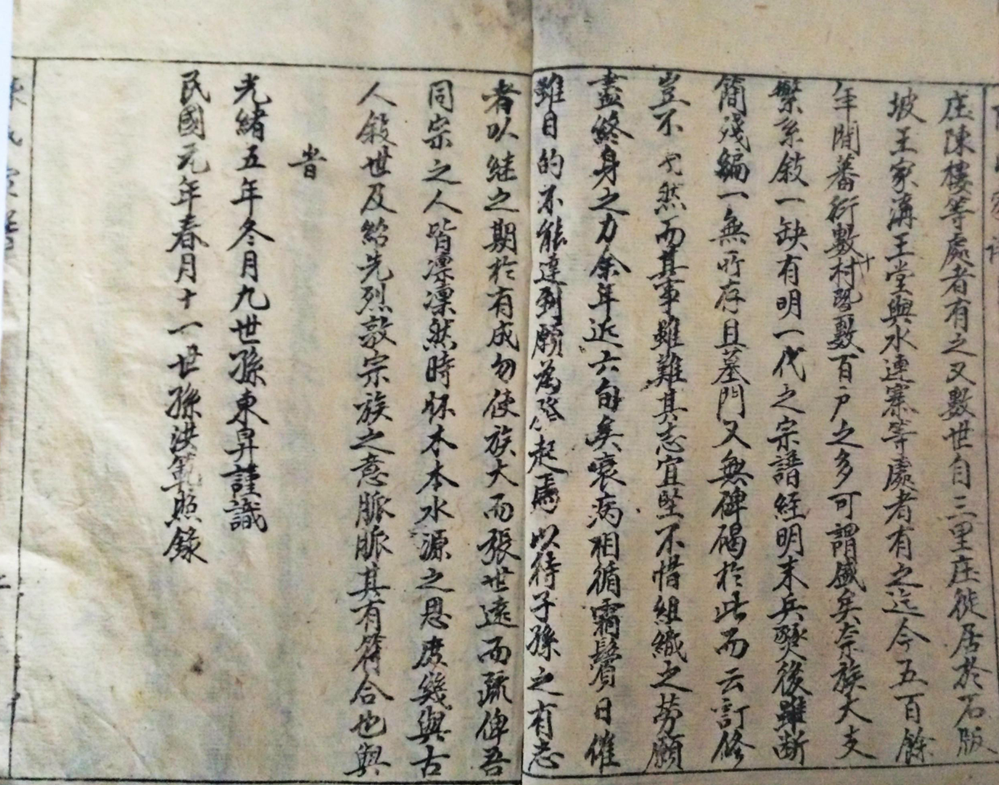 庄陳樓等處者有之又數世自三里庄徙居於石版
坡王家溝王堂與水連寨等處者有之迄今五百餘
年間蕃衍數十村堅數百戶之多可謂盛矣奈族大支
繁系敘一缺有明一代之宗譜經明末兵燹後雖斷
簡殘編一無所存且墓門又無碑碣於此而云訂修
豈不戛戛然而其事雖難其志宜堅不惜組織之勞願
盡終身之力余年近六旬矣衰病相循霜鬢日催
雖目的不能達到願為隗起焉以待子孫之有志
者以继之期於有成勿使族大而張世遠而疏俾吾
同宗之人皆凛凛然時怀本本水源之思庶幾與古
人敘世及紹先烈敦宗族之意脈脈其有符合也與
旹
光緒五年冬月九世孫東昇謹識
民國元年春月十一世孫洪範照錄